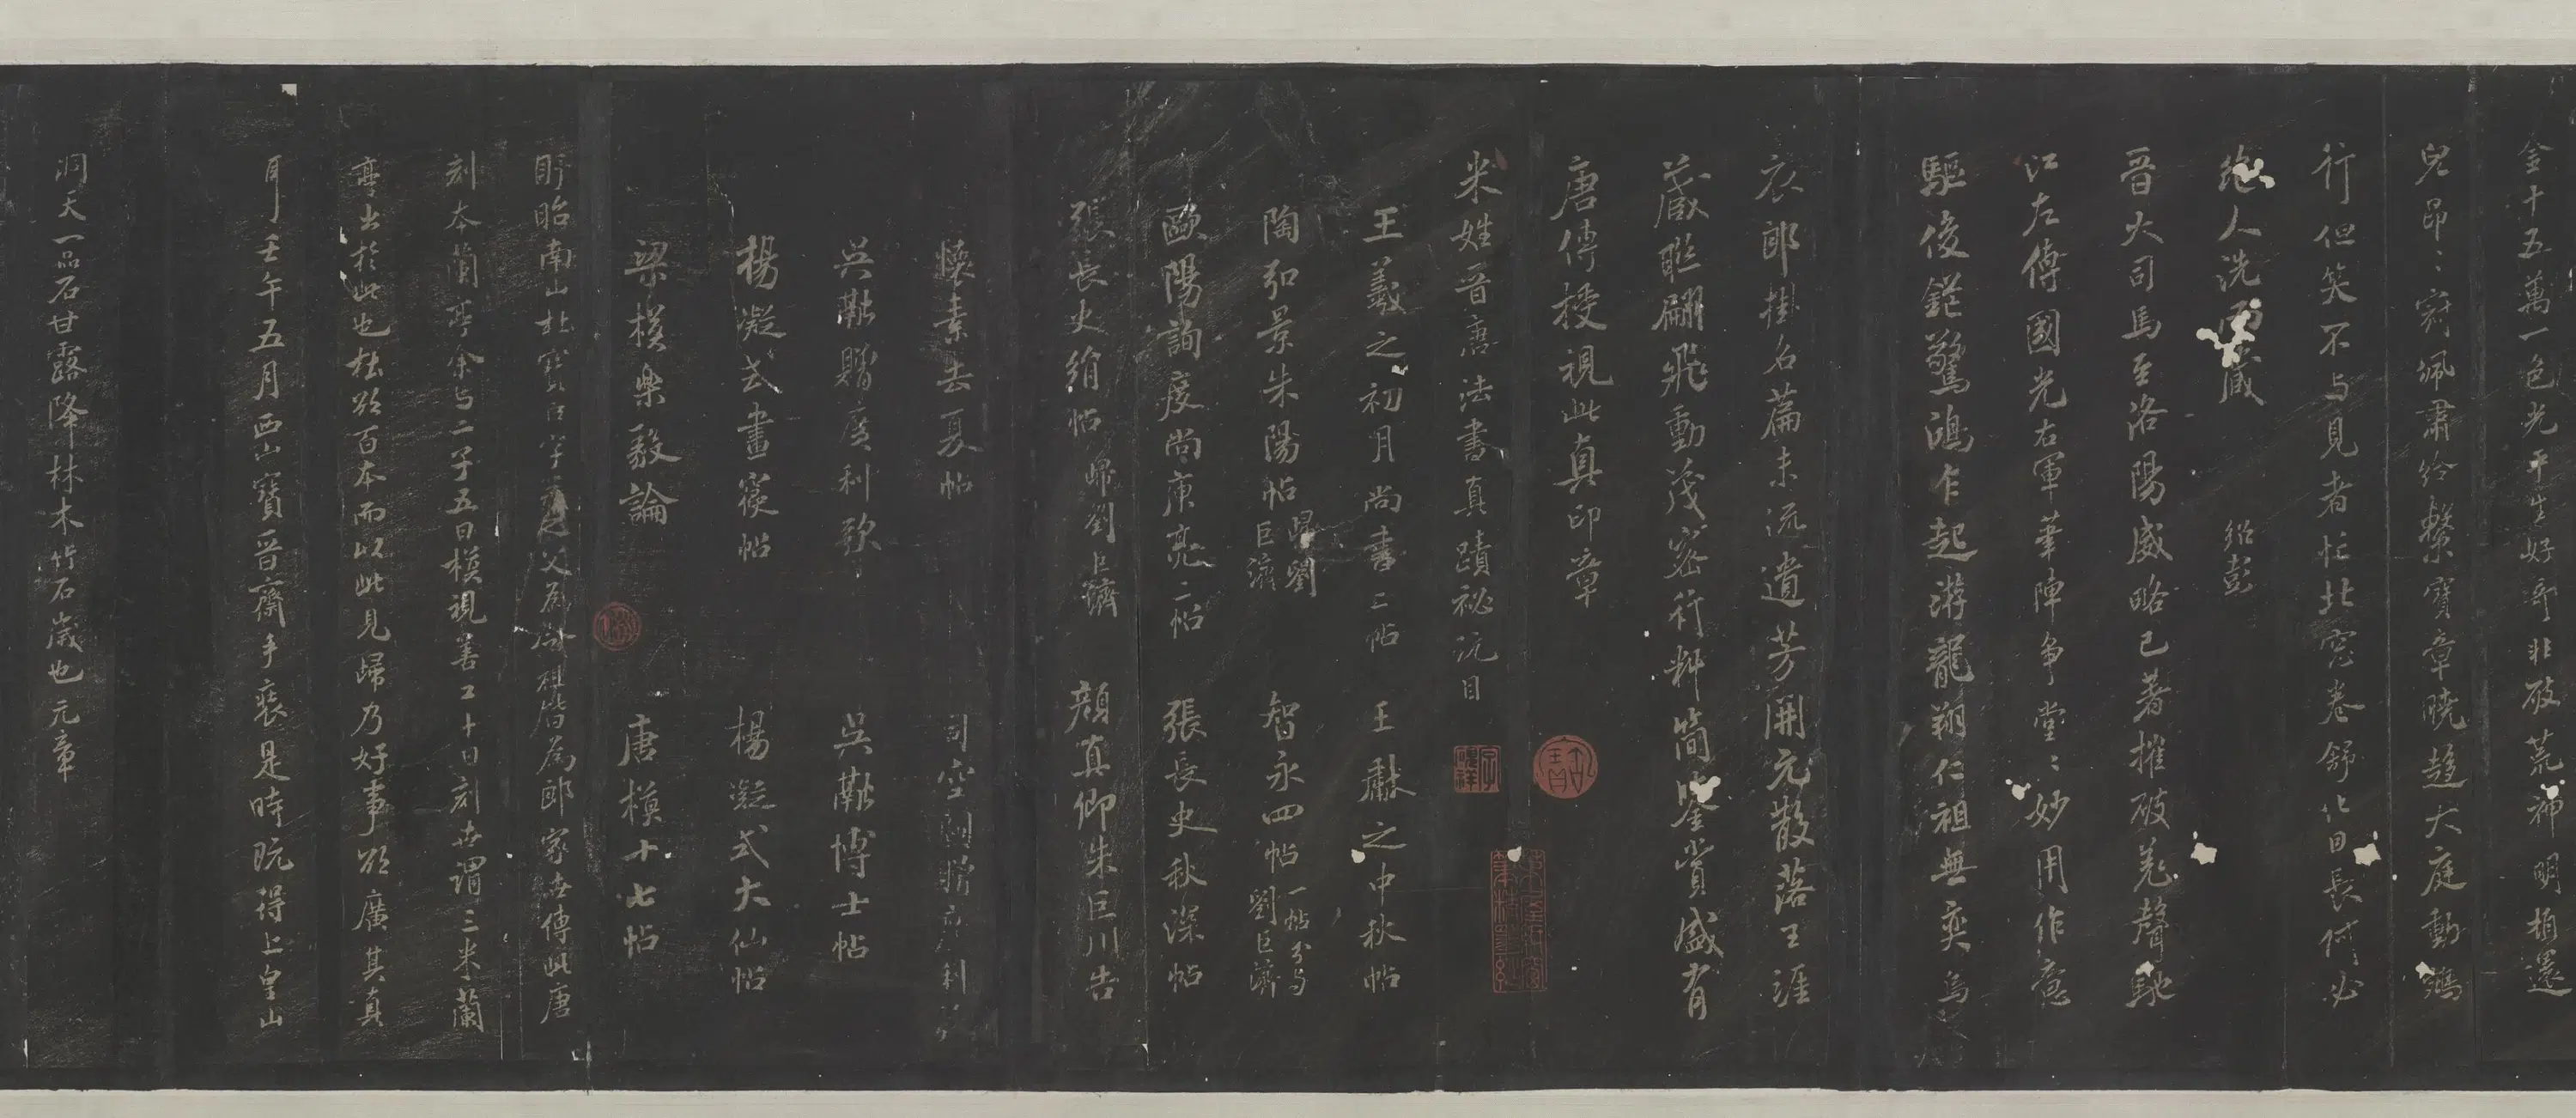 金十五萬一色光平生好奇非破荒神明頓還
兒昂〻冠佩肅綷繫寶章曉趨大庭動鵷
行但笑不與見者忙北窓卷舒化日長何必
絶人洗而藏 紹彭
晋大司馬至洛陽威略已著摧破羌聲馳
江左傳國光右軍筆陣爭堂〻妙用作意
驅俊鋩驚鴻乍起游龍翔仁祖無奕烏
衣郎掛名篇末流遺芳開元散落王涯
藏聮翩飛動茂密行料簡鉴賞盛有
唐傳授視此真印章
米姓晋唐法書真蹟祕玩目
王羲之初月尚書二帖 王獻之中秋帖
陶弘景朱陽帖歸劉巨濟 智永四帖一帖分与劉巨濟
歐陽詢度尚庾亮二帖 張長史秋深帖
張長史絹帖歸劉巨濟 顔真卿朱巨川告
懷素去夏帖 司空圖贈廣利
吳融贈廣利歌 吳融博士帖
楊凝式晝寢帖 楊凝式大仙帖
梁模樂毅論 唐模十七帖
盱眙南山杜寶臣字之父為祖皆為郎家世傳此唐
刻本蘭亭余与二子五日模視善工十日刻世謂三米蘭
亭出於此也杜欲百本而以此見歸乃好事欲廣其真
耳壬午五月西山寶晋齋手裝是時晥得上皇山
洞天一品石甘露降林木竹石歲也元章